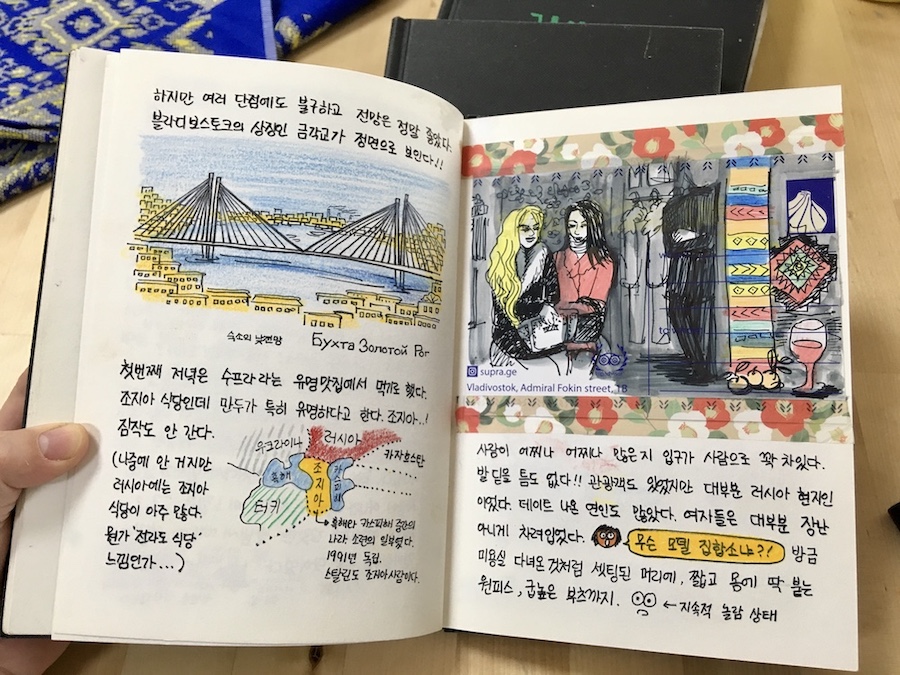 하지만 여러 단점에도 불구하고 전망은 정말 좋았다.
블라디보스토크의 상징인 금각교가 정면으로 보인다!!
숙소의 낮전망
Бухта Золотой Рог
첫번째 저녁은 수프라 라는 유명맛집에서 먹기로 했다.
조지아 식당인데 만두가 특히 유명하다고 한다. 조지아..!
짐작도 안 간다.
(나중에 안 거지만
러시아에는 조지아
식당이 아주 많다.
뭔가 '전라도 식당'
느낌인가...)
우크라이나
러시아
카자흐스탄
흑해
조지아
카스피해
터키
흑해와 카스피해 중간의
나라. 소련의 일부였다.
1991년 독립.
스탈린도 조지아사람이다.
supra.ge
Vladivostok, Admiral Fokin street, 1B
사람이 어찌나 어찌나 많은지 입구가 사람으로 꽉 차있다.
발 디딜 틈도 없다!! 관광객도 있었지만 대부분 러시아 현지인
이었다. 데이트 나온 연인도 많았다. 여자들은 대부분 장난
아니게 차려입었다. 무슨 모델 집합소냐?! 방금
미용실 다녀온것처럼 셋팅된 머리에, 짧고 몸에 딱 붙는
원피스, 굽높은 부츠까지. ← 지속적 놀람 상태